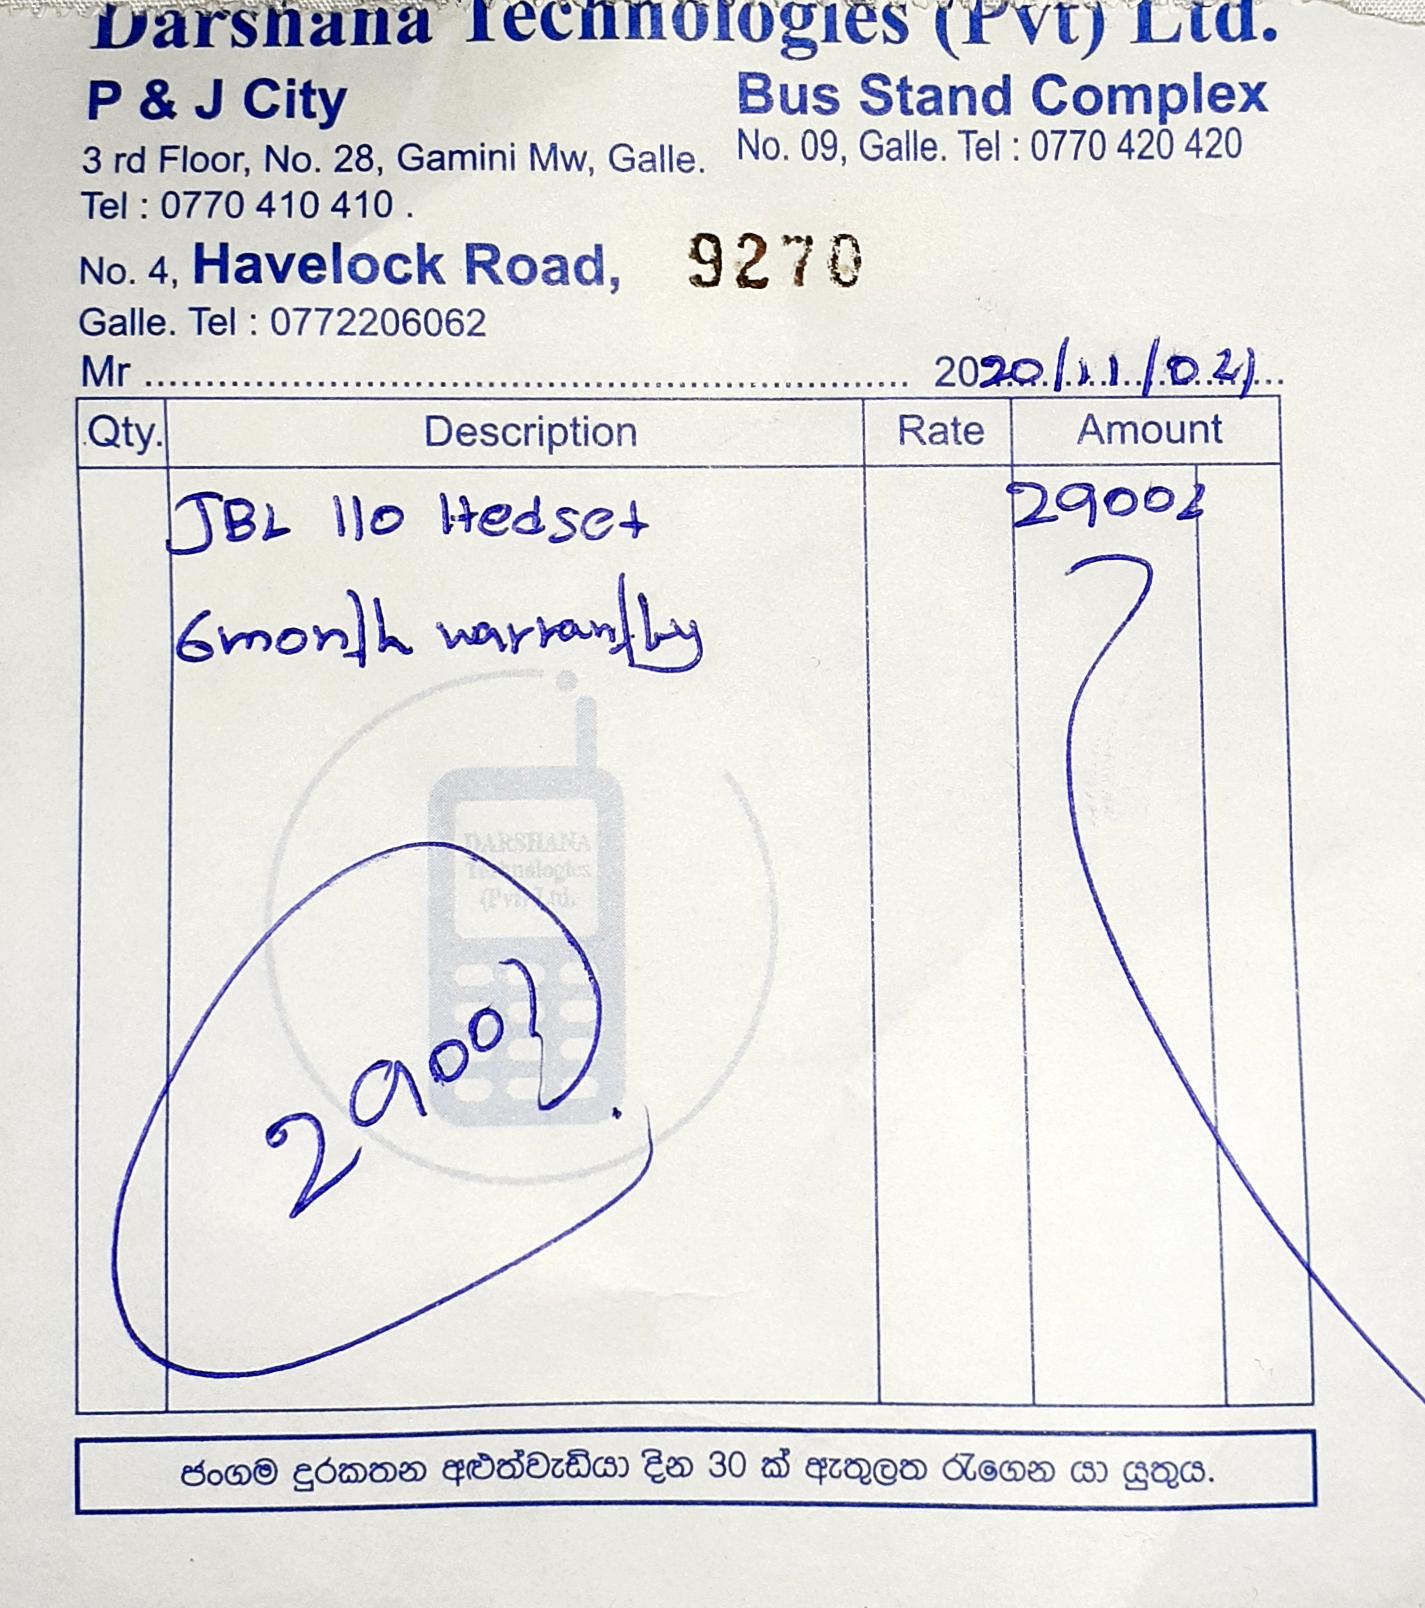 Darshana Technologies (Pvt) Ltd.
P & J City
3 rd Floor, No. 28, Gamini Mw, Galle.
Tel : 0770 410 410 .
Bus Stand Complex
No. 09, Galle. Tel : 0770 420 420
No. 4, Havelock Road,
Galle. Tel : 0772206062
9270
Mr ........................................ 2020/11/02
Qty. Description Rate Amount
JBL 110 Hedset 2900
6month warranty
DARSHANA
Technologies
(Pvt) Ltd.
2900
ජංගම දුරකතන අළුත්වැඩියා දින 30 ක් ඇතුලත රැගෙන යා යුතුය.